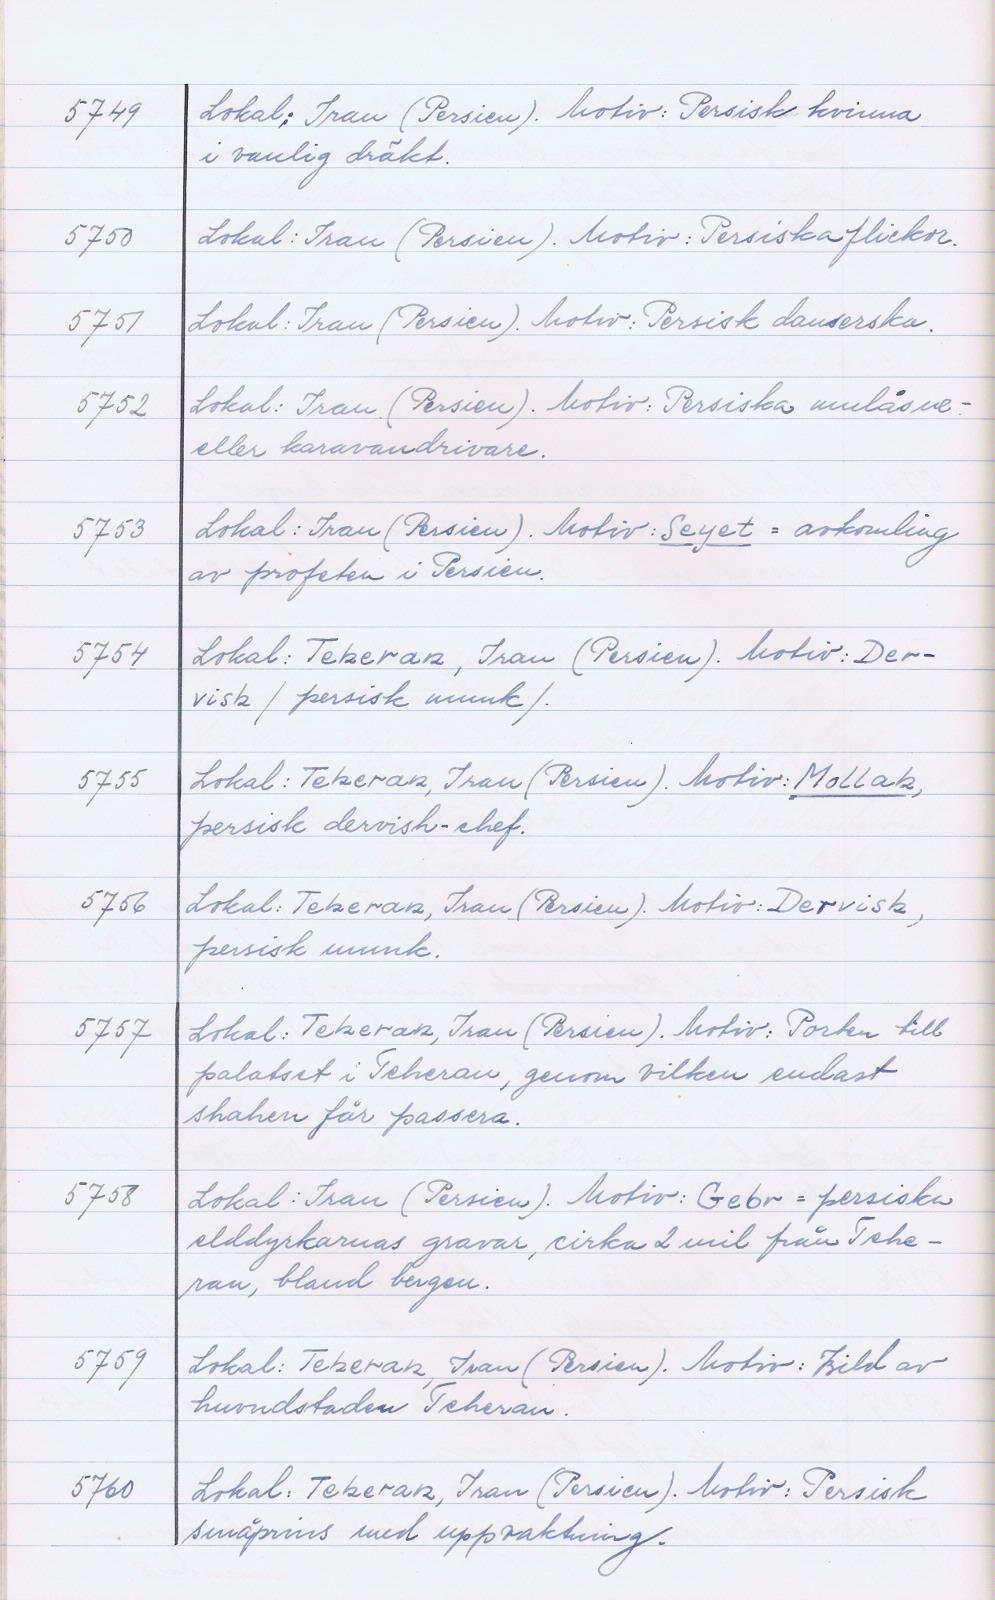 5749 Lokal: Iran (Persien). Motiv: Persisk kvinna
i vanlig dräkt.
5750 Lokal: Iran (Persien). Motiv: Persiska flickor.
5751 Lokal: Iran (Persien). Motiv: Persisk danserska.
5752 Lokal: Iran (Persien). Motiv: Persiska mulåsne-
eller karavandrivare.
5753 Lokal: Iran (Persien). Motiv: Seyet = avkomling
av profeten i Persien.
5754 Lokal: Teheran, Iran (Persien). Motiv: Der-
vish / persisk munk /.
5755 Lokal: Teheran, Iran (Persien). Motiv: Mollah,
persisk dervish-chef.
5756 Lokal: Teheran, Iran (Persien). Motiv: Dervish,
persisk munk.
5757 Lokal: Teheran, Iran (Persien). Motiv: Porten till
palatset i Teheran, genom vilken endast
shahen får passera.
5758 Lokal: Iran (Persien). Motiv: Gebr = persiska
elddyrkarnas gravar, cirka 2 mil från Tehe-
ran, bland bergen.
5759 Lokal: Teheran, Iran (Persien). Motiv: Bild av
huvudstaden Teheran.
5760 Lokal: Teheran, Iran (Persien). Motiv: Persisk
småprins med uppvaktning.